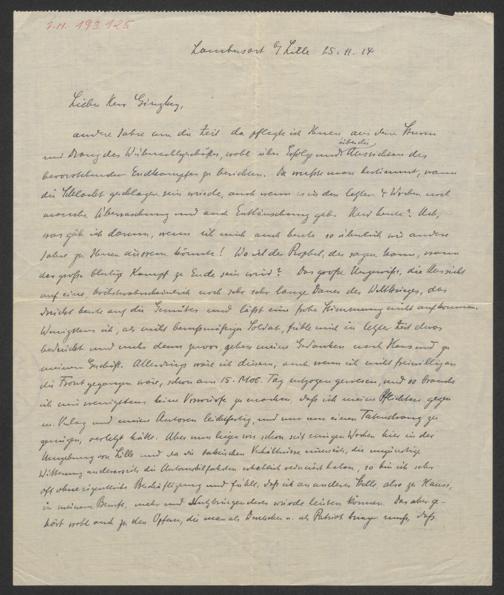 I.N. 193.125
Lambersart b/ Lille 25.11.14
Lieber Herr Ginzkey,
andere Jahre um die Zeit da pflegte ich Ihnen aus dem Sturm
und Drang des Weihnachtsgeschäftes, wohl über Erfolg und über die Aussichten des
bevorstehenden Endkampfes zu berichten. Da wusste man bestimmt, wann
die Schlacht geschlagen sein würde, auch wenn es in den letzten Wochen noch
manche Überraschung und auch Enttäuschung gab. Und heute? Ach,
was gäb ich darum, wenn ich mich auch heute so ähnlich wie andere
Jahre zu Ihnen äussern könnte! Wo ist der Prophet, der sagen kann, wann
das große blutige Kampf zu Ende sein wird? Das große Ungewisse, die Aussicht
auf eine höchstwahrscheinlich noch sehr sehr lange Dauer des Weltkrieges, das
drückt heute auf die Gemüter und läßt eine frohe Stimmung nicht aufkommen.
Wenigstens ich, als nicht berufsmäßiger Soldat, fühle mich in letzter Zeit etwas
bedrückt und mehr denn zuvor gehen meine Gedanken nach Haus und zu
meinem Geschäft. Allerdings wäre ich diesem, auch wenn ich nicht freiwillig an
die Front gegangen wäre, schon am 15. Mob. Tag entzogen gewesen, und so brauche
ich mir wenigstens keine Vorwürfe zu machen, daß ich meine Pflichten gegen
m. Verlag und meine Autoren leichtfertig, und nur um einem Tatendrang zu
genügen, verletzt hätte. Aber nun liegen wir schon seit einigen Wochen hier in der
Umgebung von Lille und da die taktischen Verhältnisse einerseits, die ungünstige
Witterung andererseits die Automobilfahrten erheblich reduziert haben, so bin ich sehr
oft ohne eigentliche Beschäftigung und fühle, daß ich an anderer Stelle also zu Hause,
in meinem Beruf, mehr und Nutzbringenderes würde leisten können. Das aber ge-
hört wohl auch zu den Opfern, die man als Deutscher u. als Patriot bringen muß, daß